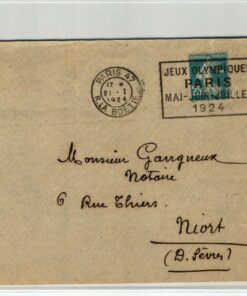 PARIS 47
17 *
21 · I
1924
R. LA BOETIE
JEUX OLYMPIQUES
PARIS
MAI-JUIN-JUILLE
1924
Monsieur Gangneux
Notaire
6 Rue Thiers.
Niort
(D. Sèvres)